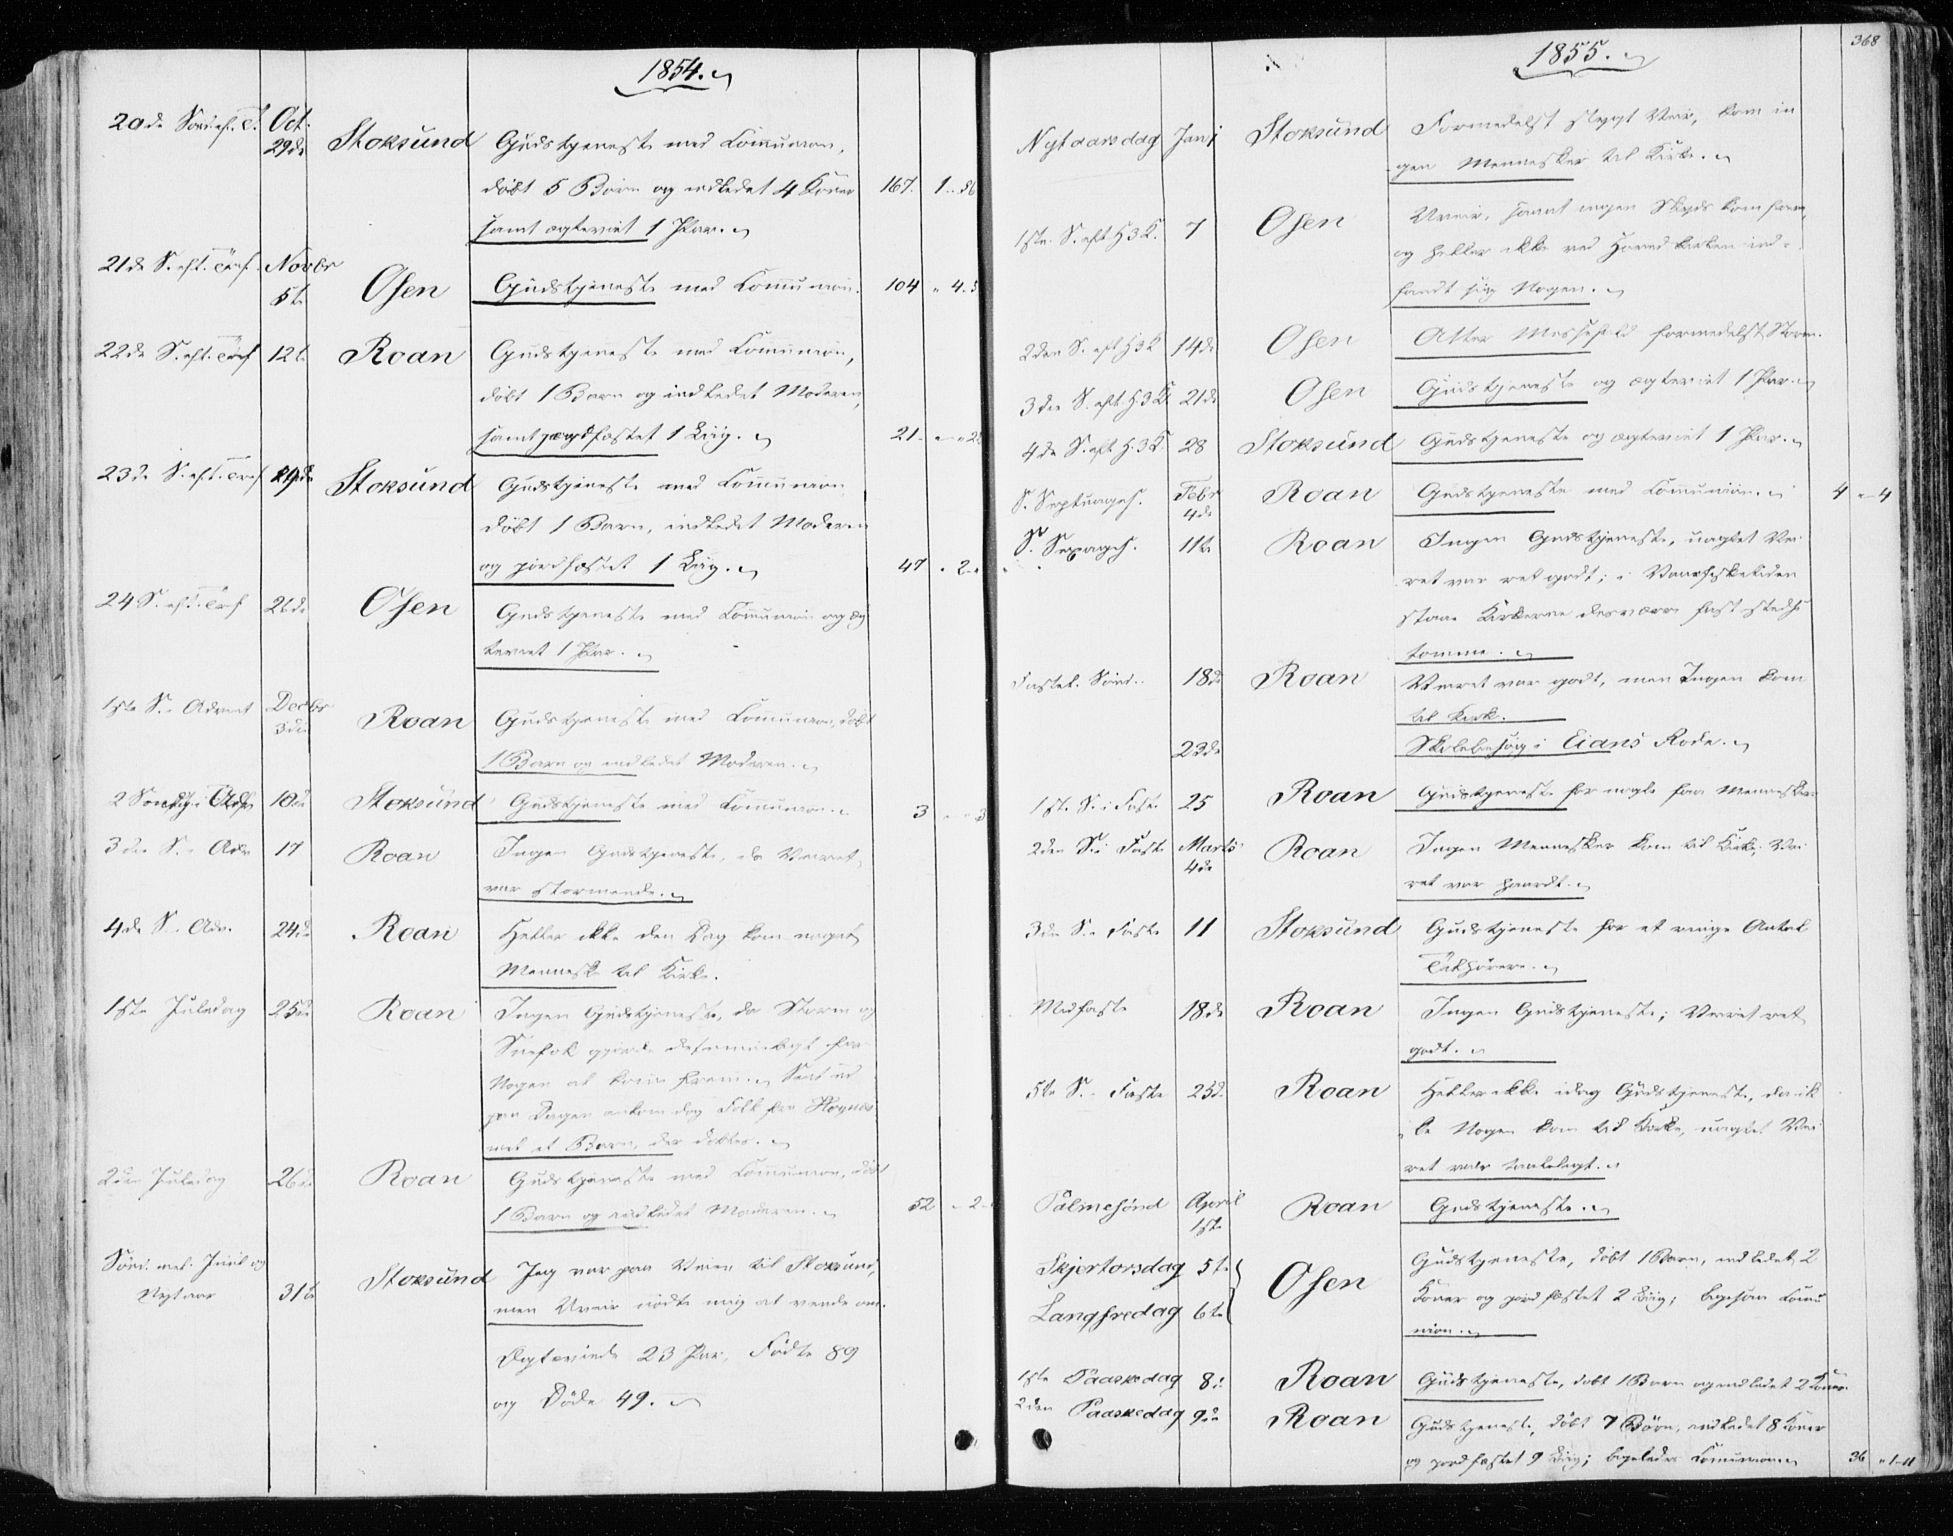 1854.
20de Sønd. eft. T. Oct. 29de Stoksund Gudstjeneste med Communion,
døbt 5 Børn og indledet 4 Koner 167. 1..56
samt ægteviet 1 Par.
21de S. eft. Tref. Novbr 5te Osen Gudstjeneste med Communion. 104 " 4.
22de S. eft. Tref 12te Roan Gudstjeneste med Communion,
døbt 1 Barn og indledet Moderen,
samt jordfæstet 1 Liig. 21.
23de S. eft. Tref 19de Stoksund Gudstjeneste med Communion
døbt 1 Barn, indledet Moderen
og jordfæstet 1 Liig. 47 " 2
24 S. eft. Tref 26de Osen Gudstjeneste med Communion og æg
teviet 1 Par.
1ste S. i Advent Decbr 3die Roan Gudstjeneste med Communion, døbt
1 Barn og indledet Moderen.
2 Søndag i Adv. 10de Stoksund Gudstjeneste med Communion. 3 " " 3
3die S. i Adv 17 Roan Ingen Gudstjeneste, da Veiret
var stormende.
4de S. i Adv. 24de Roan Heller ikke den Dag kom noget
Menneske til Kirke.
1ste Juledag 25de Roan Ingen Gudstjeneste, da Storm og
Snefok gjorde det umueligt for
Nogen at komme frem. Sent ud
paa Dagen ankom dog Folk fra Hopnes
med et Barn, der døbtes.
2den Juledag 26de Roan Gudstjeneste med Communion, døbt
1 Barn og indledet Moderen. 52 " 2
Sønd. mel. Juul og
Nytaar 31te Stoksund Jeg var paa Veien til Stoksund,
men Uveir nødte mig at vende om.
Ægteviede 23 Par, Fødte 89
og Døde 49.
1855.
368
Nytaarsdag Jan 1 Stoksund Formedelst stygt Veir, kom in
gen Mennesker til Kirke.
1ste S. eft. H3K. 7 Osen Uveir, samt ingen Skyds kom frem,
og heller ikke ved Hovedkirken ind-
fandt sig Nogen.
2den S. eft H3K 14de Osen Atter Messefald formedelst Storm.
3die S. eft. H3K 21de Osen Gudstjeneste og ægteviet 1 Par.
4de S. eft H.3K. 28 Stoksund Gudstjeneste og ægteviet 1 Par.
S. Septuages. Febr 4de Roan Gudstjeneste med Communion. 4 " 4
S. Sexages. 11te Roan Ingen Gudstjeneste, uagtet Vei-
ret var ret godt; i Vaarfisketiden
staae Kirkerne desværre fast stedse
tomme.
Fastel. Sønd. 18de Roan Veiret var godt, men Ingen kom
til Kirke.
23de Skolebesøg i Eians Rode.
1ste S. i Faste 25 Roan Gudstjeneste for nogle faa Mennesker.
2den S. i Faste Marts 4de Roan Ingen Mennesker kom til Kirke; Vei-
ret var haardt.
3die S. i Faste 11 Stoksund Gudstjeneste for et ringe Antal
Tilhørere.
Midfaste 18de Roan Ingen Gudstjeneste; Veiret ret
godt.
5te S. i Faste 25de Roan Heller ikke idag Gudstjeneste, da ik
ke Nogen kom til Kirke, uagtet Vei-
ret var taaleligt.
Palmesønd April 1ste Roan Gudstjeneste.
Skjertorsdag 5te Osen Gudstjeneste, døbt 1 Barn, indledet 2
Langfredag 6te Koner og jordfæstet 2 Liig; ligesom Commu
nion.
1ste Paaskedag 8de Roan Gudstjeneste, døbt 1 Barn og indledet 2 Koner.
2den Paaskedag 9de Roan Gudstjeneste, døbt 7 Børn, indledet 8 Koner
og jordfæstet 9 Liig; ligeledes Communion 36 " 1-11